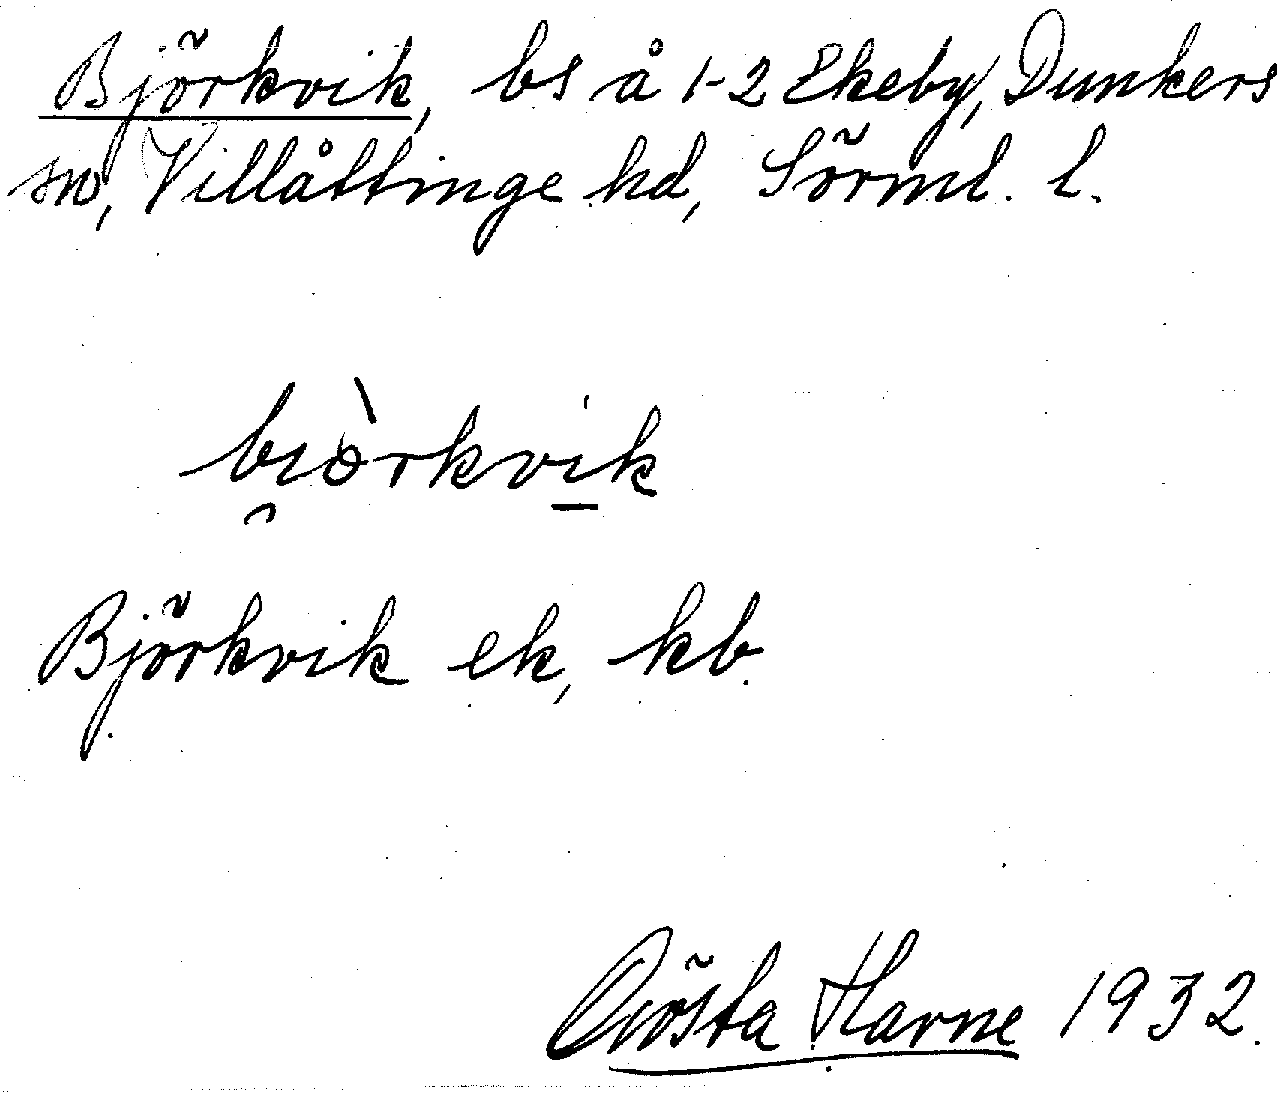 Björkvik, bs å 1-2 Ekeby, Dunkers
sn, Villåttinge hd, Sörml. l.
bi̯òrkvi̱k
Björkvik ek, kb.
Gösta Harne 1932.